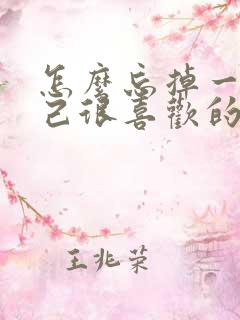 怎麼忘掉一
己很喜歡的
王兆荣